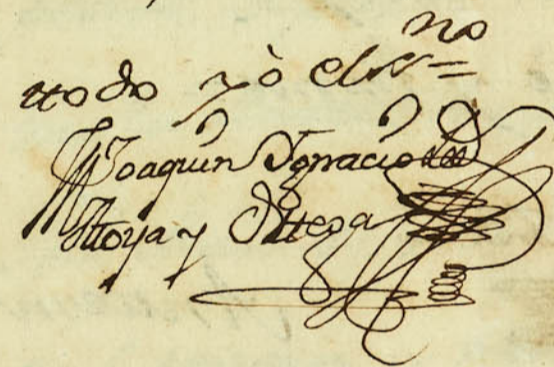 no
ttodo yò el ess=
Joaquin Ignacio de
Moya y Ortega